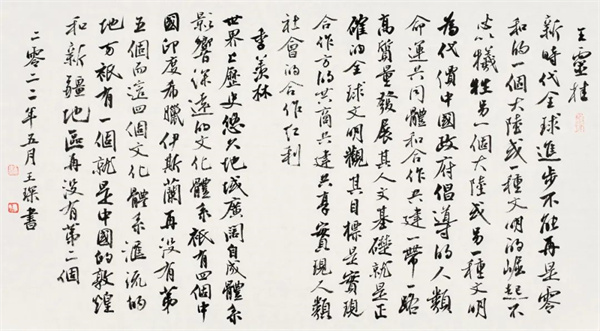 王靈桂
新時代全球進步不能再是零
和的一個大陸或一種文明的崛起不
必以犧牲另一個大陸或另一種文明
為代價中國政府倡導的人類
命運共同體和合作共建一帶一路
高質量發展其人文基礎就是正
確的全球文明觀其目標是實現
合作方的共商共建共享實現人類
社會的合作紅利
季羨林
世界上歷史悠久地域廣闊自成體系
影響深遠的文化體系祇有四個中
國印度希臘伊斯蘭再沒有第
五個而這四個文化體系滙流的
地方祇有一個就是中國的敦煌
和新疆地區再沒有第二個
二零二二年五月王琛書